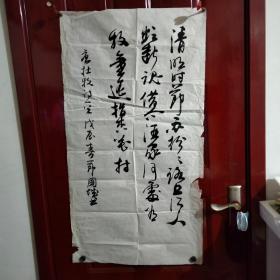 清明时节雨纷々路上行人
欲断魂借问酒家何处有
牧童遥指杏花村
唐杜牧诗一首 戊辰春节国